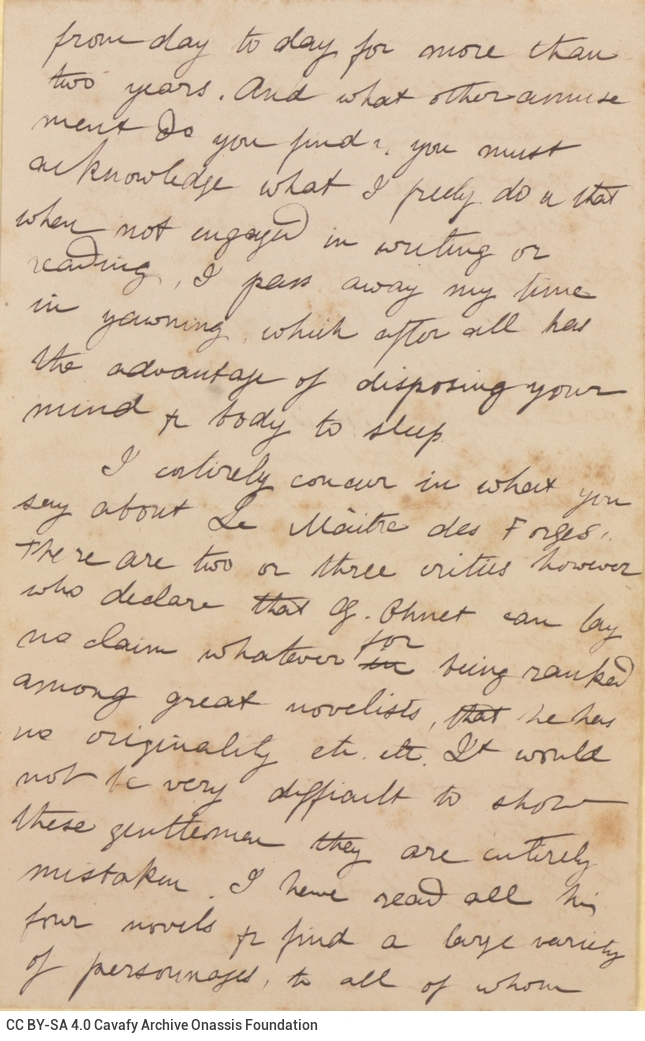 from day to day for more than
two years. And what other amuse
ment do you find? you must
acknowledge what I freely do that
when not engaged in writing or
reading, I pass away my time
in yawning which after all has
the advantage of disposing your
mind & body to sleep
I entirely concur in what you
say about Le Maître des Forges.
There are two or three critics however
who declare that G. Ohnet can lay
no claim whatever in for being ranked
among great novelists, that he has
no originality etc. etc. It would
not be very difficult to show
these gentlemen they are entirely
mistaken. I have read all his
four novels & find a large variety
of personnages, to all of whom
CC BY-SA 4.0 Cavafy Archive Onassis Foundation